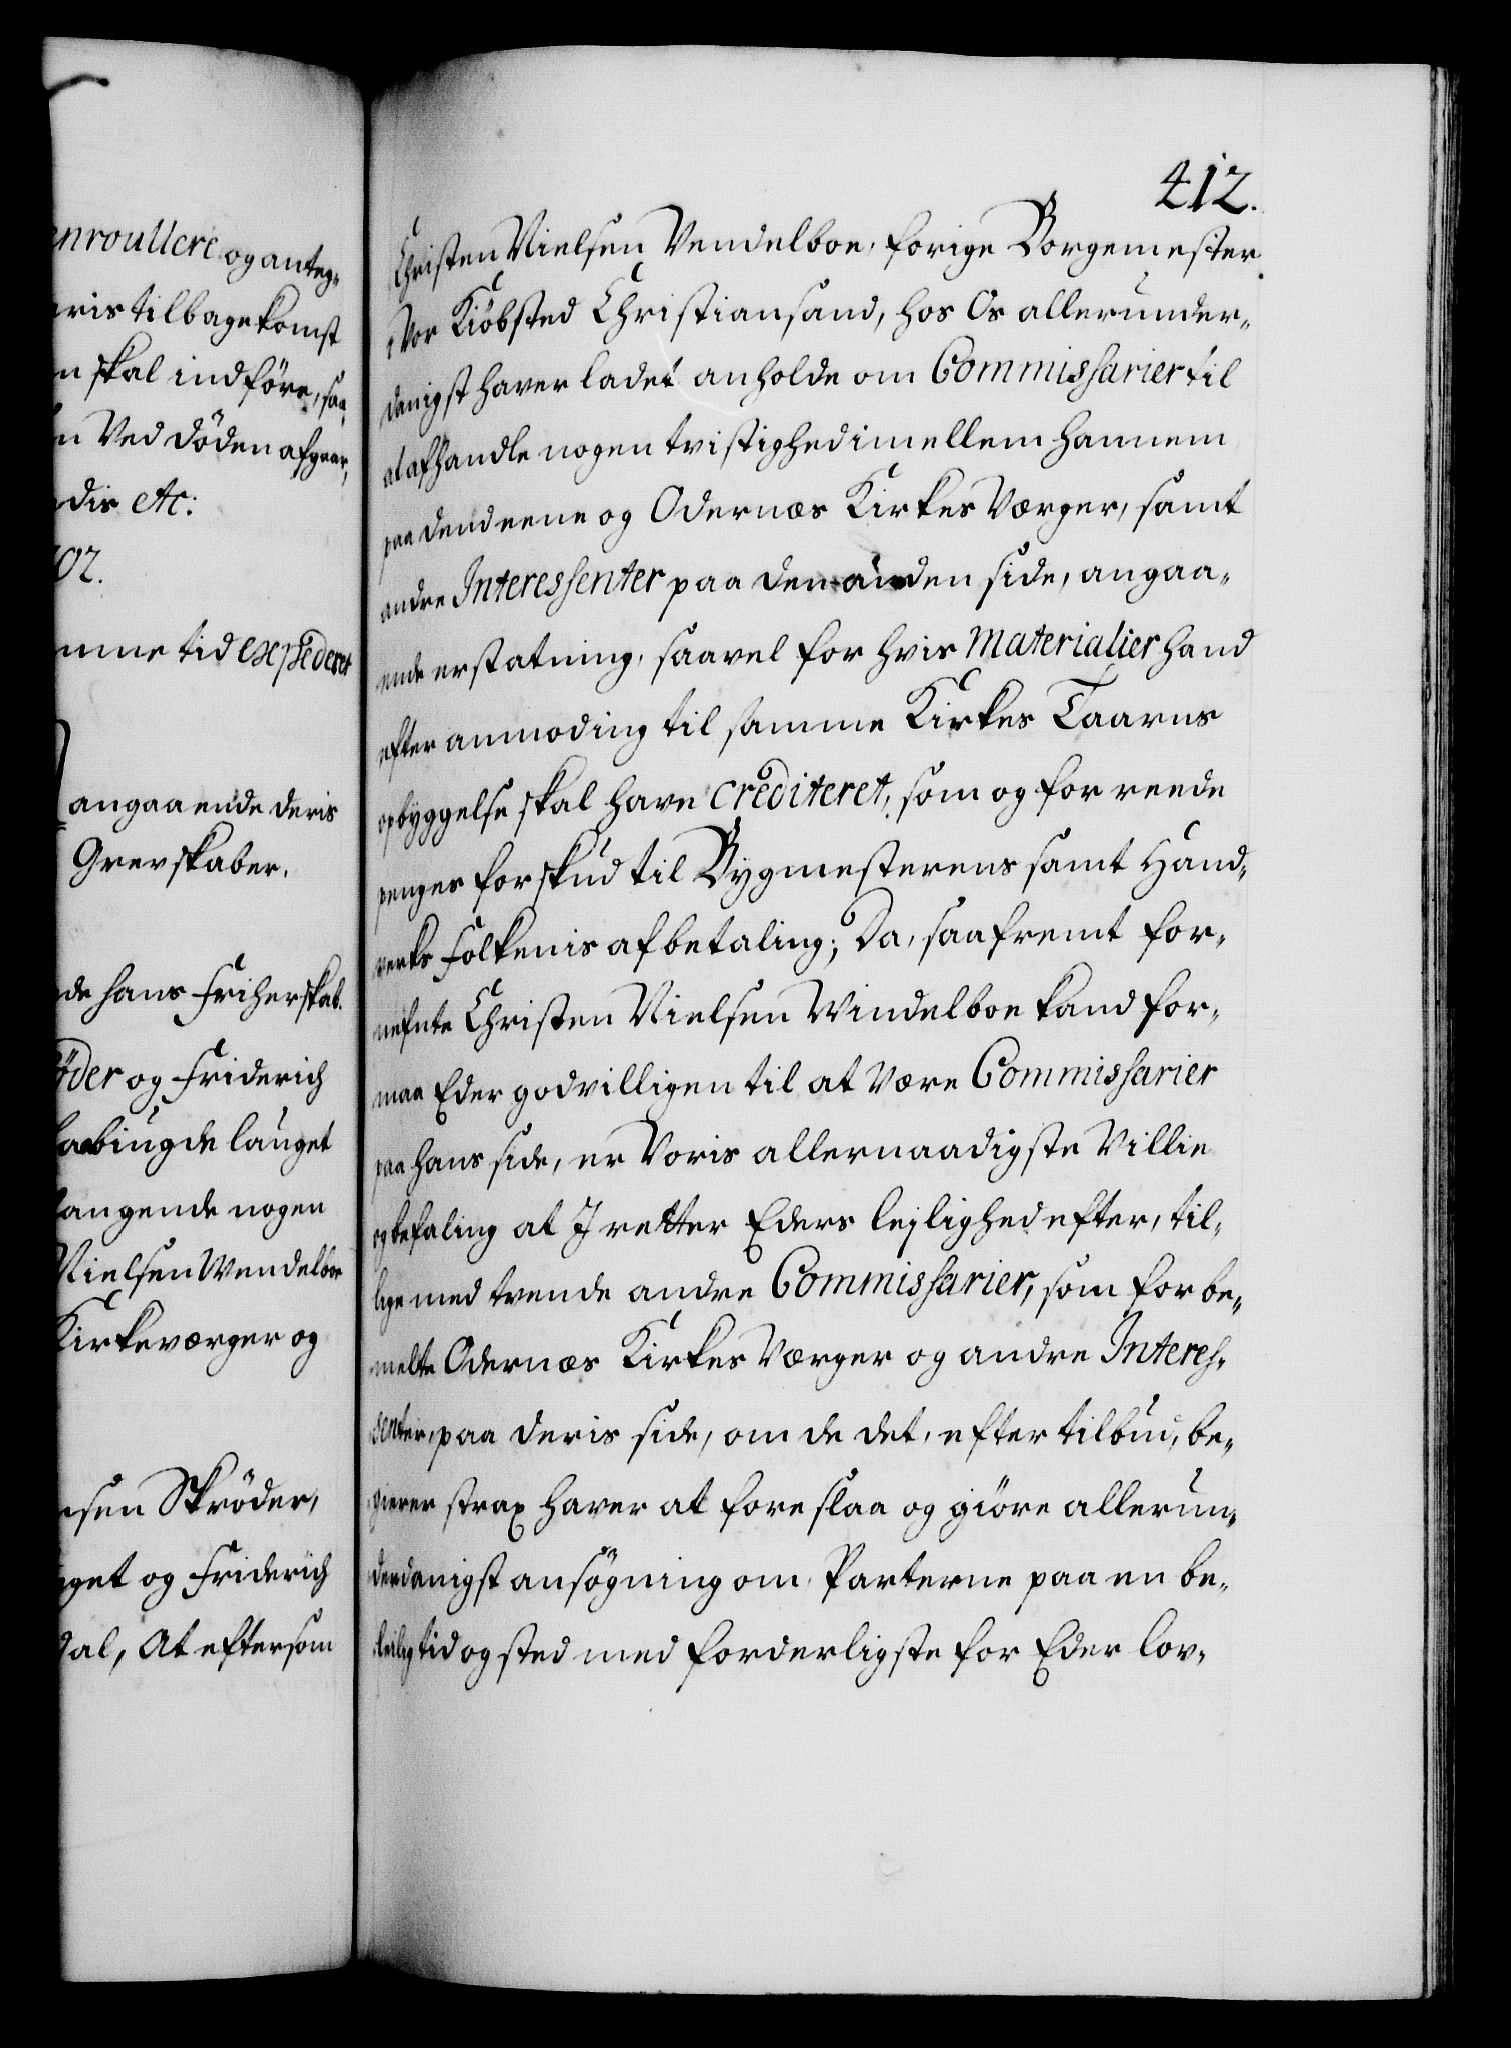 enroullere og anteg-
eris tilbagekomst
n skal indføre, saa
n Ved Døden afgaar,
dis etc:
02.
mme tid expederet
angaaende deris
Grevskaber.
de hans Friherskab.
öder og Friderich
laubiugde lauget
langende nogen
Nielsen Wendelboe
Kirkeværger og
nsen Skröder,
get og Friderich
dal, At eftersom
412.
Christen Nielsen Vendelboe, forige Borgemester
i Vor Kiöbsted Christiansand, hos Os allerunder-
danigst haver ladet anholde om Commissarier til
at afhandle nogen tvistighed imellem hannem
paa dend eene og Odernæs Kirkes Værger, samt
andre Interessenter paa den anden side, angaa-
ende erstatning, saavel for hvis Materialier hand
efter anmoding til samme Kirkes Taarns
opbyggelse skal have Crediteret, som og for reede
penges forskud til Bygmesterens samt Hand-
verks Folkenis afbetaling; Da, saafremt for-
nefnte Christen Nielsen Windelboe kand for-
maa Eder godvilligen til at Være Commissarier
paa hans side, er Voris allernaadigste Villie
og befaling at I retter Eders lejlighed efter, til-
lige med tvende andre Commissarier, som forbe-
melte Odernæs Kirkes Værger og andre Interes-
senter, paa deris side, om de det, efter tilbud, be-
gierer strax haver at foreslaa og giöre allerun-
derdanigst ansögning om, Parterne paa en be-
leilig tid og sted med forderligste for Eder lov-